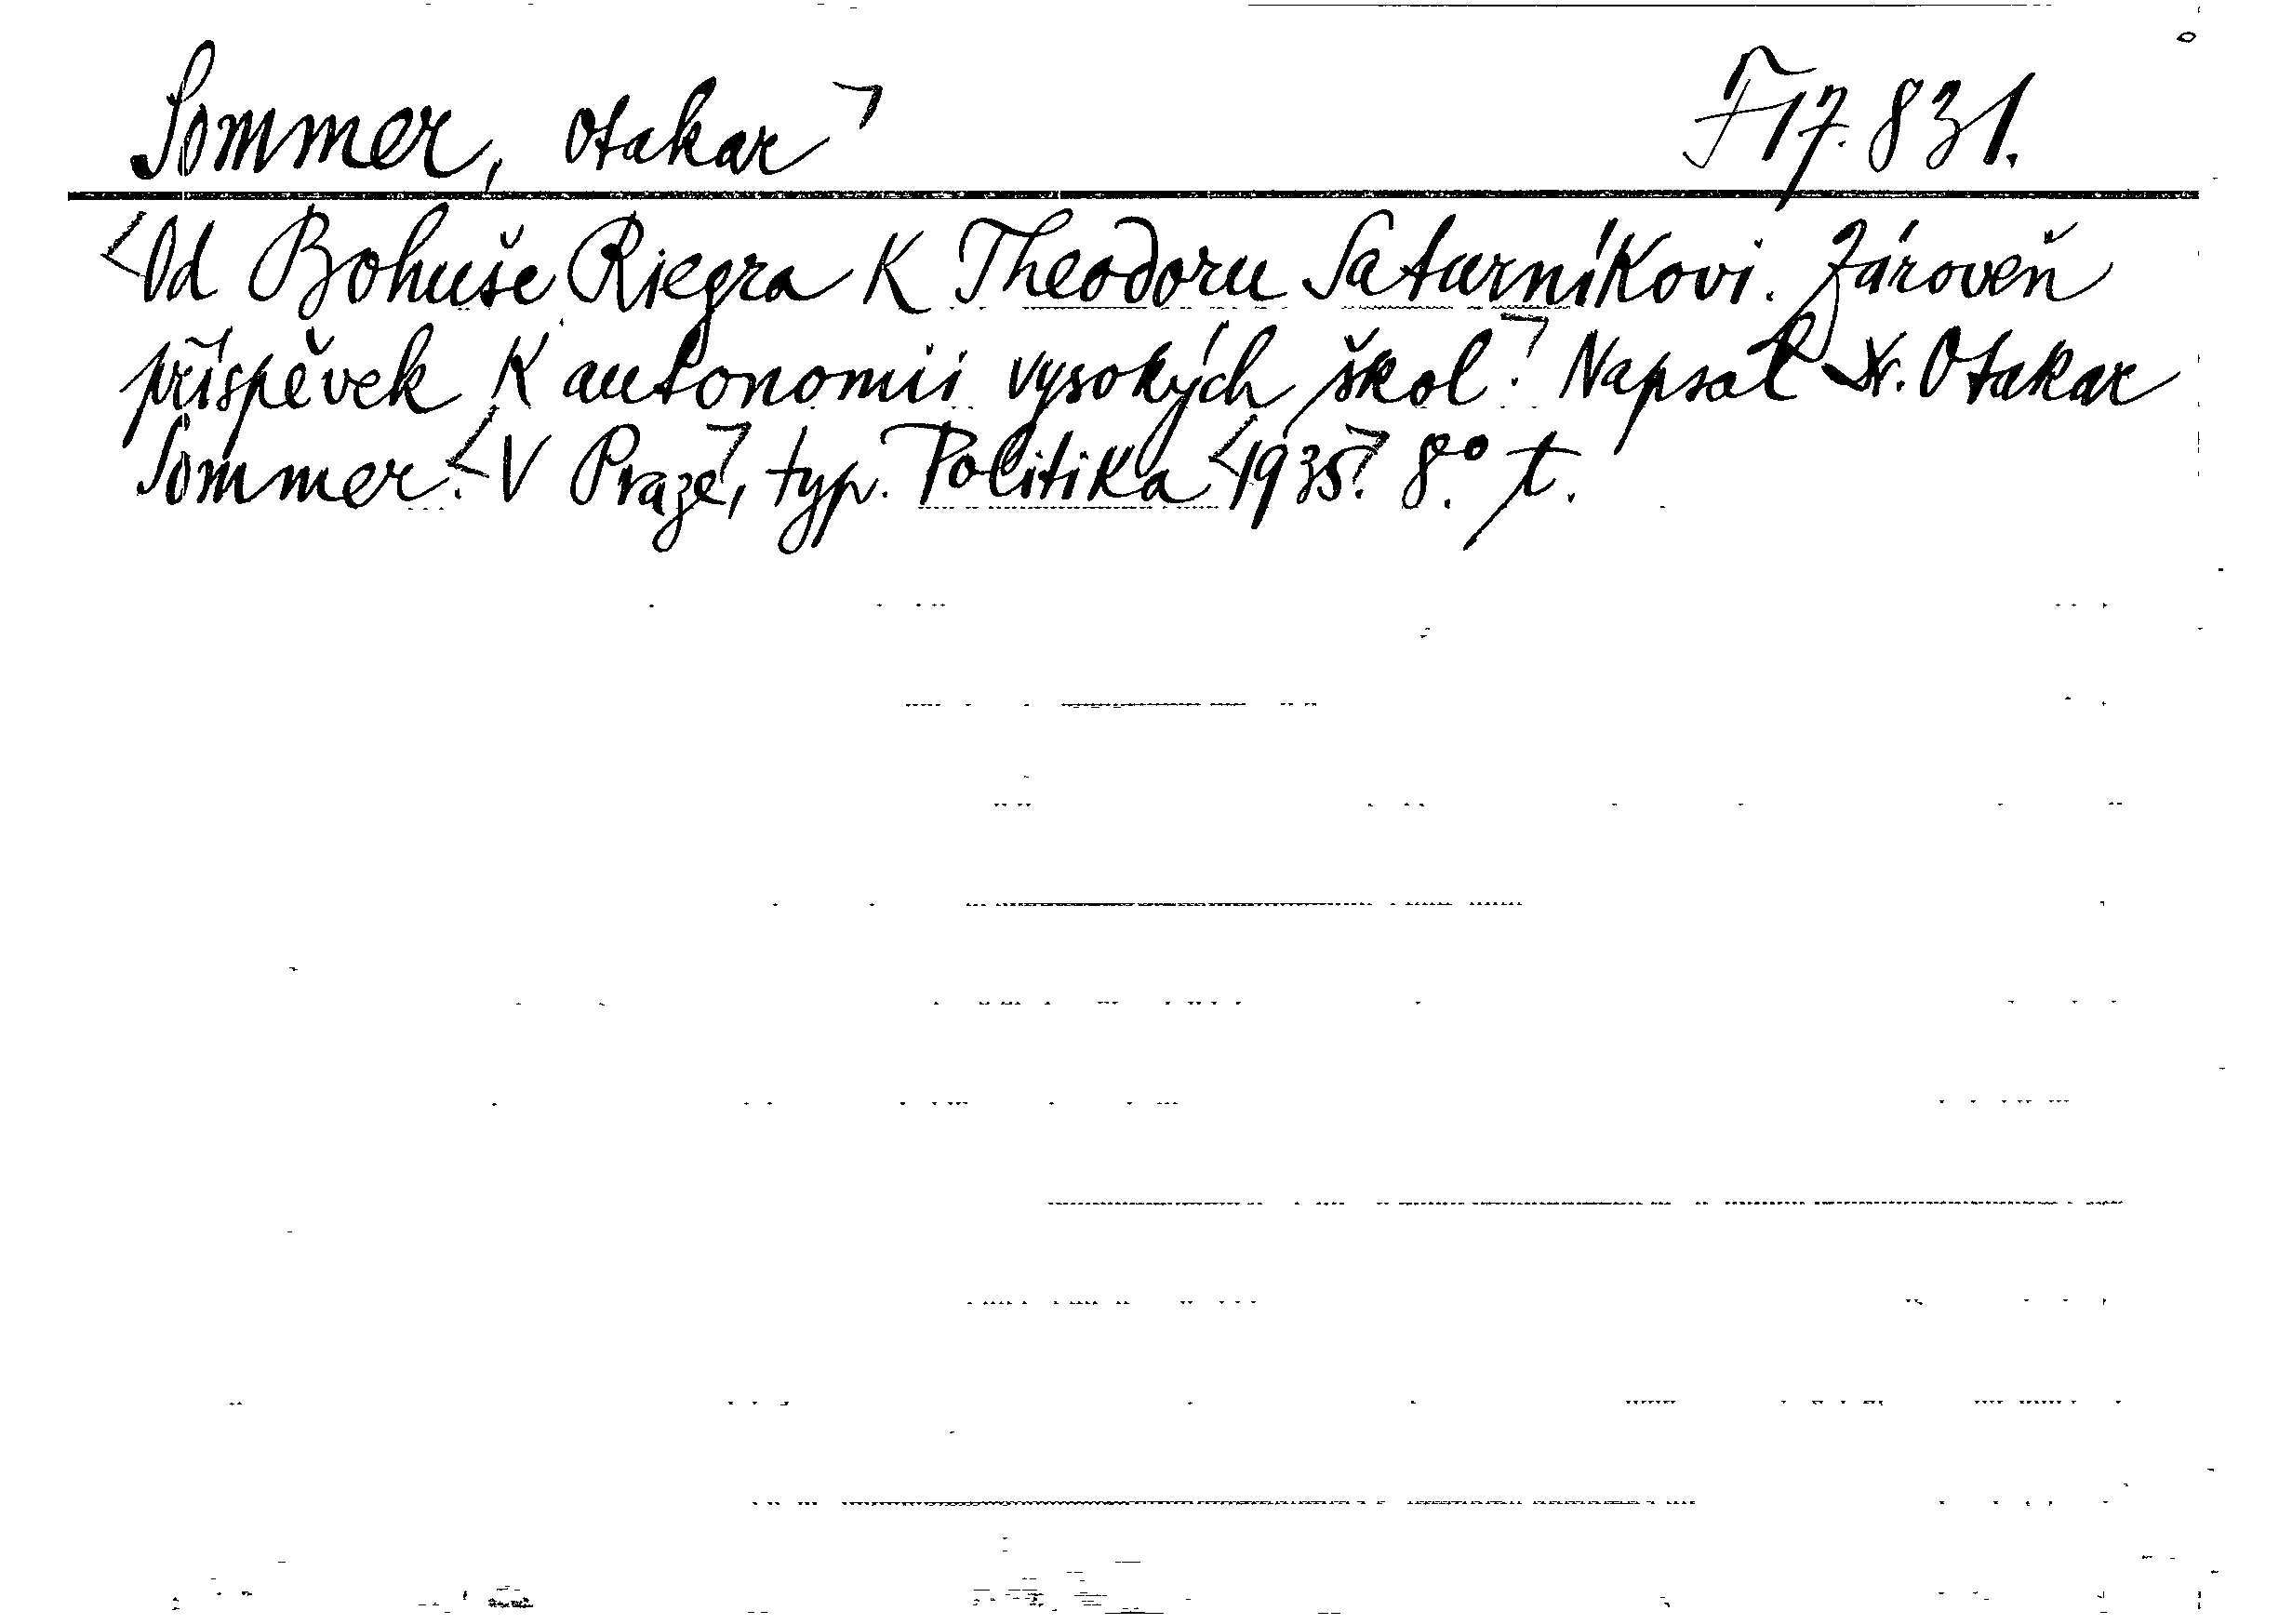 Sommer, Otakar ㄱ F 17.831.
<Od Bohuše Riegra K Theodoru Saturníkovi. Zároveň
příspěvek K autonomii vysokých škol.ㄱ Napsal Dr. Otakar
Sommer. <V Prazeㄱ, typ. Politika <1935.ㄱ 8.° t.